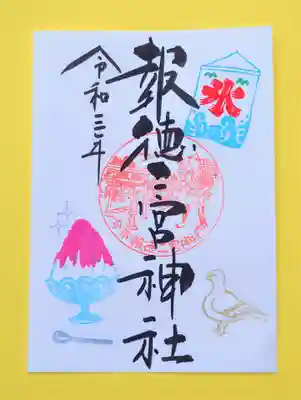 氷
報徳二宮神社
令和三年